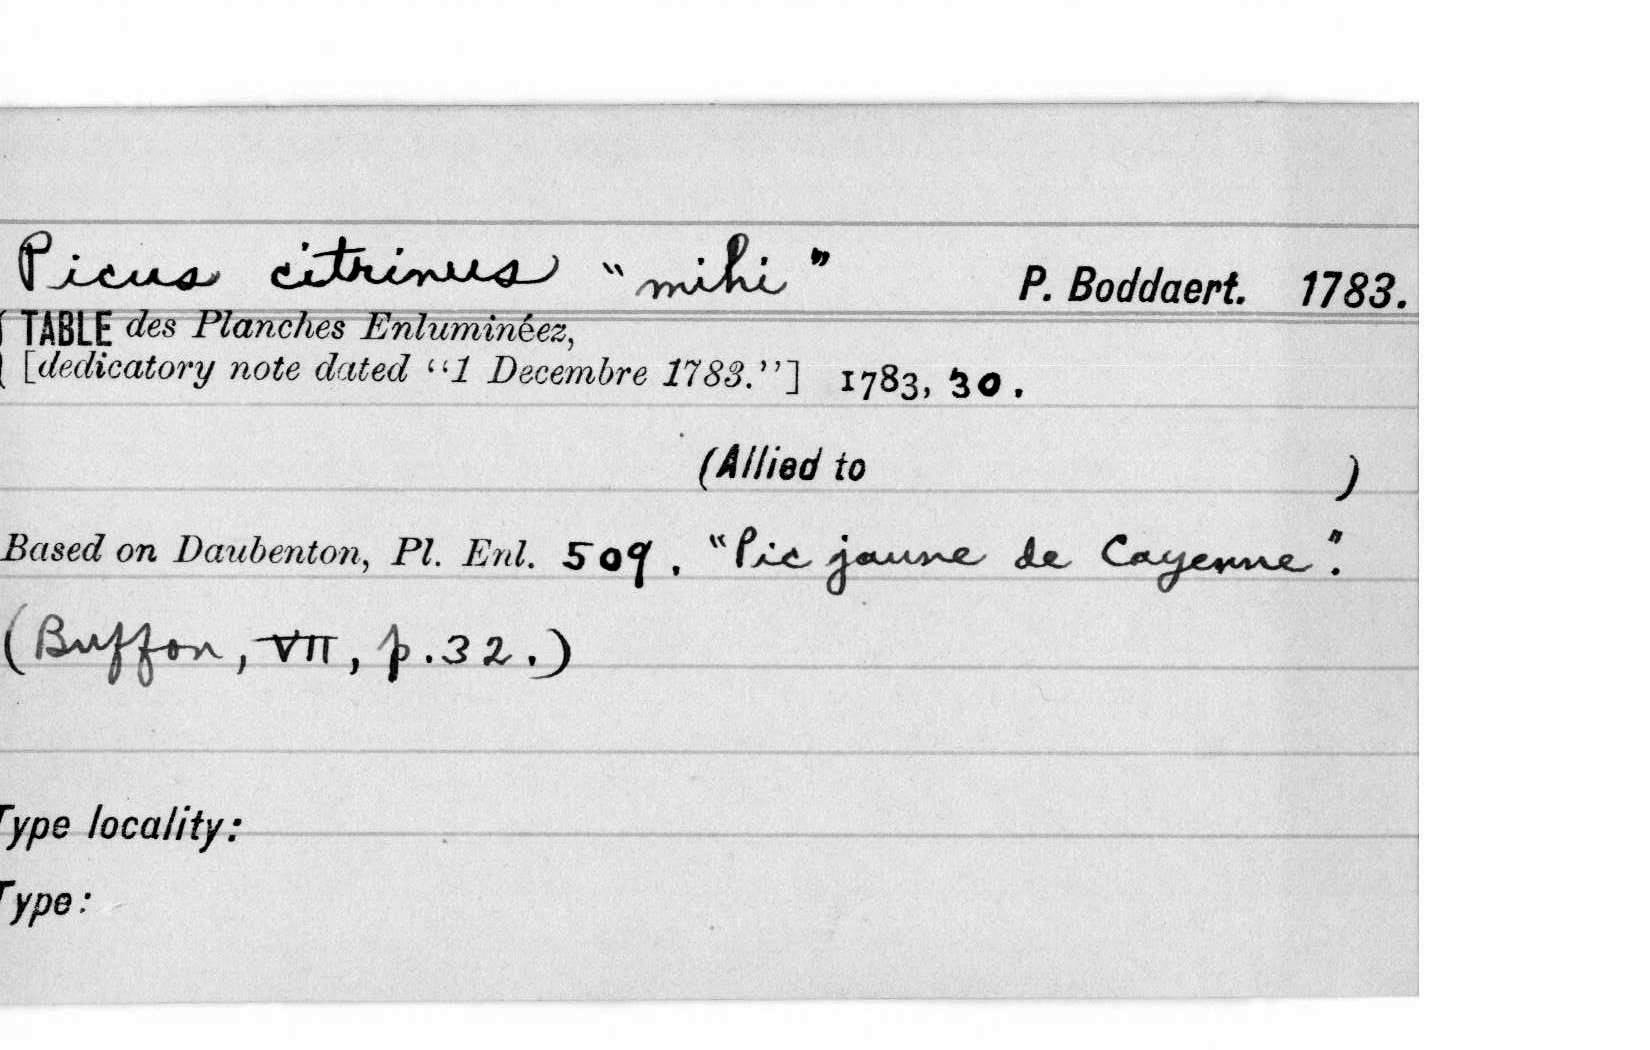 Picus citrinus “mihi” P. Boddaert. 1783.
( TABLE des Planches Enluminéez,
( [dedicatory note dated “1 Decembre 1783.”] 1783, 30.
(Allied to )
Based on Daubenton, Pl. Enl. 509. “Pic jaune de Cayenne”.
(Buffon, VII, p.32.)
Type locality:
Type: